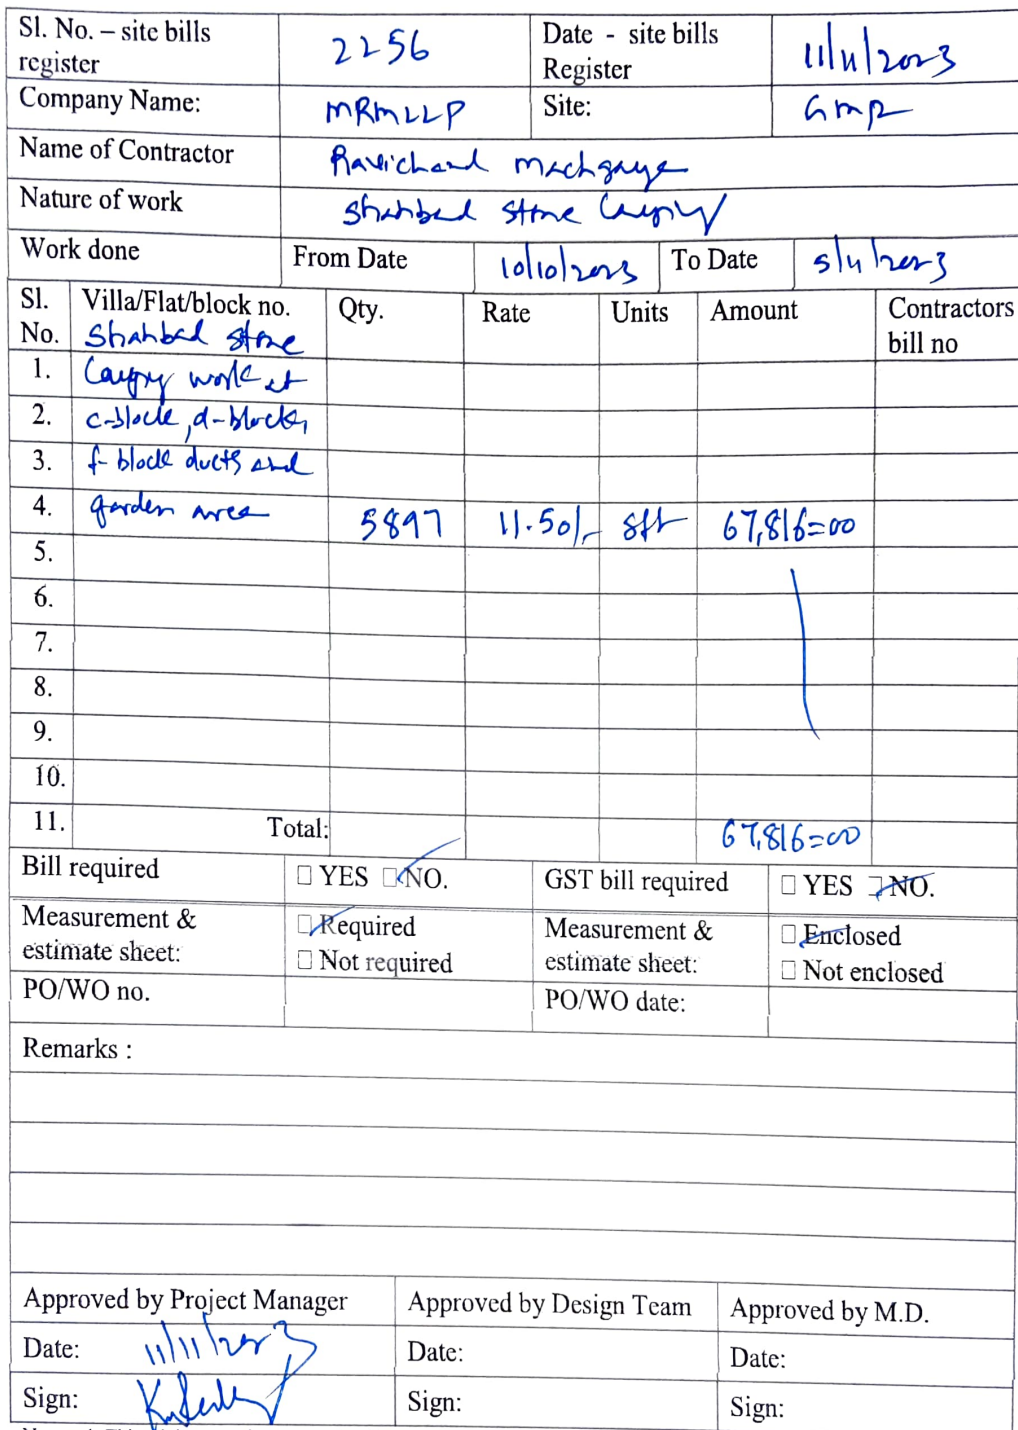 Sl. No. – site bills register 2256 Date - site bills Register 11/11/2023
Company Name: MRMLLP Site: GMR
Name of Contractor Ravichand
Nature of work Shahbad stone
Work done From Date 10/10/2023 To Date 5/11/2023
Sl. No. Villa/Flat/block no. Qty. Rate Units Amount Contractors bill no
Shahbad stone
1. work at
2. c-block, d-block,
3. f-block ducts and
4. garden area 5897 11.50/- sft 67,816=00
5.
6.
7.
8.
9.
10.
11. Total: 67,816=00
Bill required □ YES □ NO. GST bill required □ YES □ NO.
Measurement & estimate sheet: □ Required □ Not required Measurement & estimate sheet: □ Enclosed □ Not enclosed
PO/WO no. PO/WO date:
Remarks :
Approved by Project Manager Approved by Design Team Approved by M.D.
Date: 11/11/2023 Date: Date:
Sign: Sign: Sign: